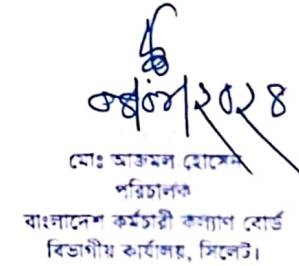 ২০২৪
মোঃ আজমল হোসেন
পরিচালক
বাংলাদেশ কর্মচারী কল্যাণ বোর্ড
বিভাগীয় কার্যালয়, সিলেট।